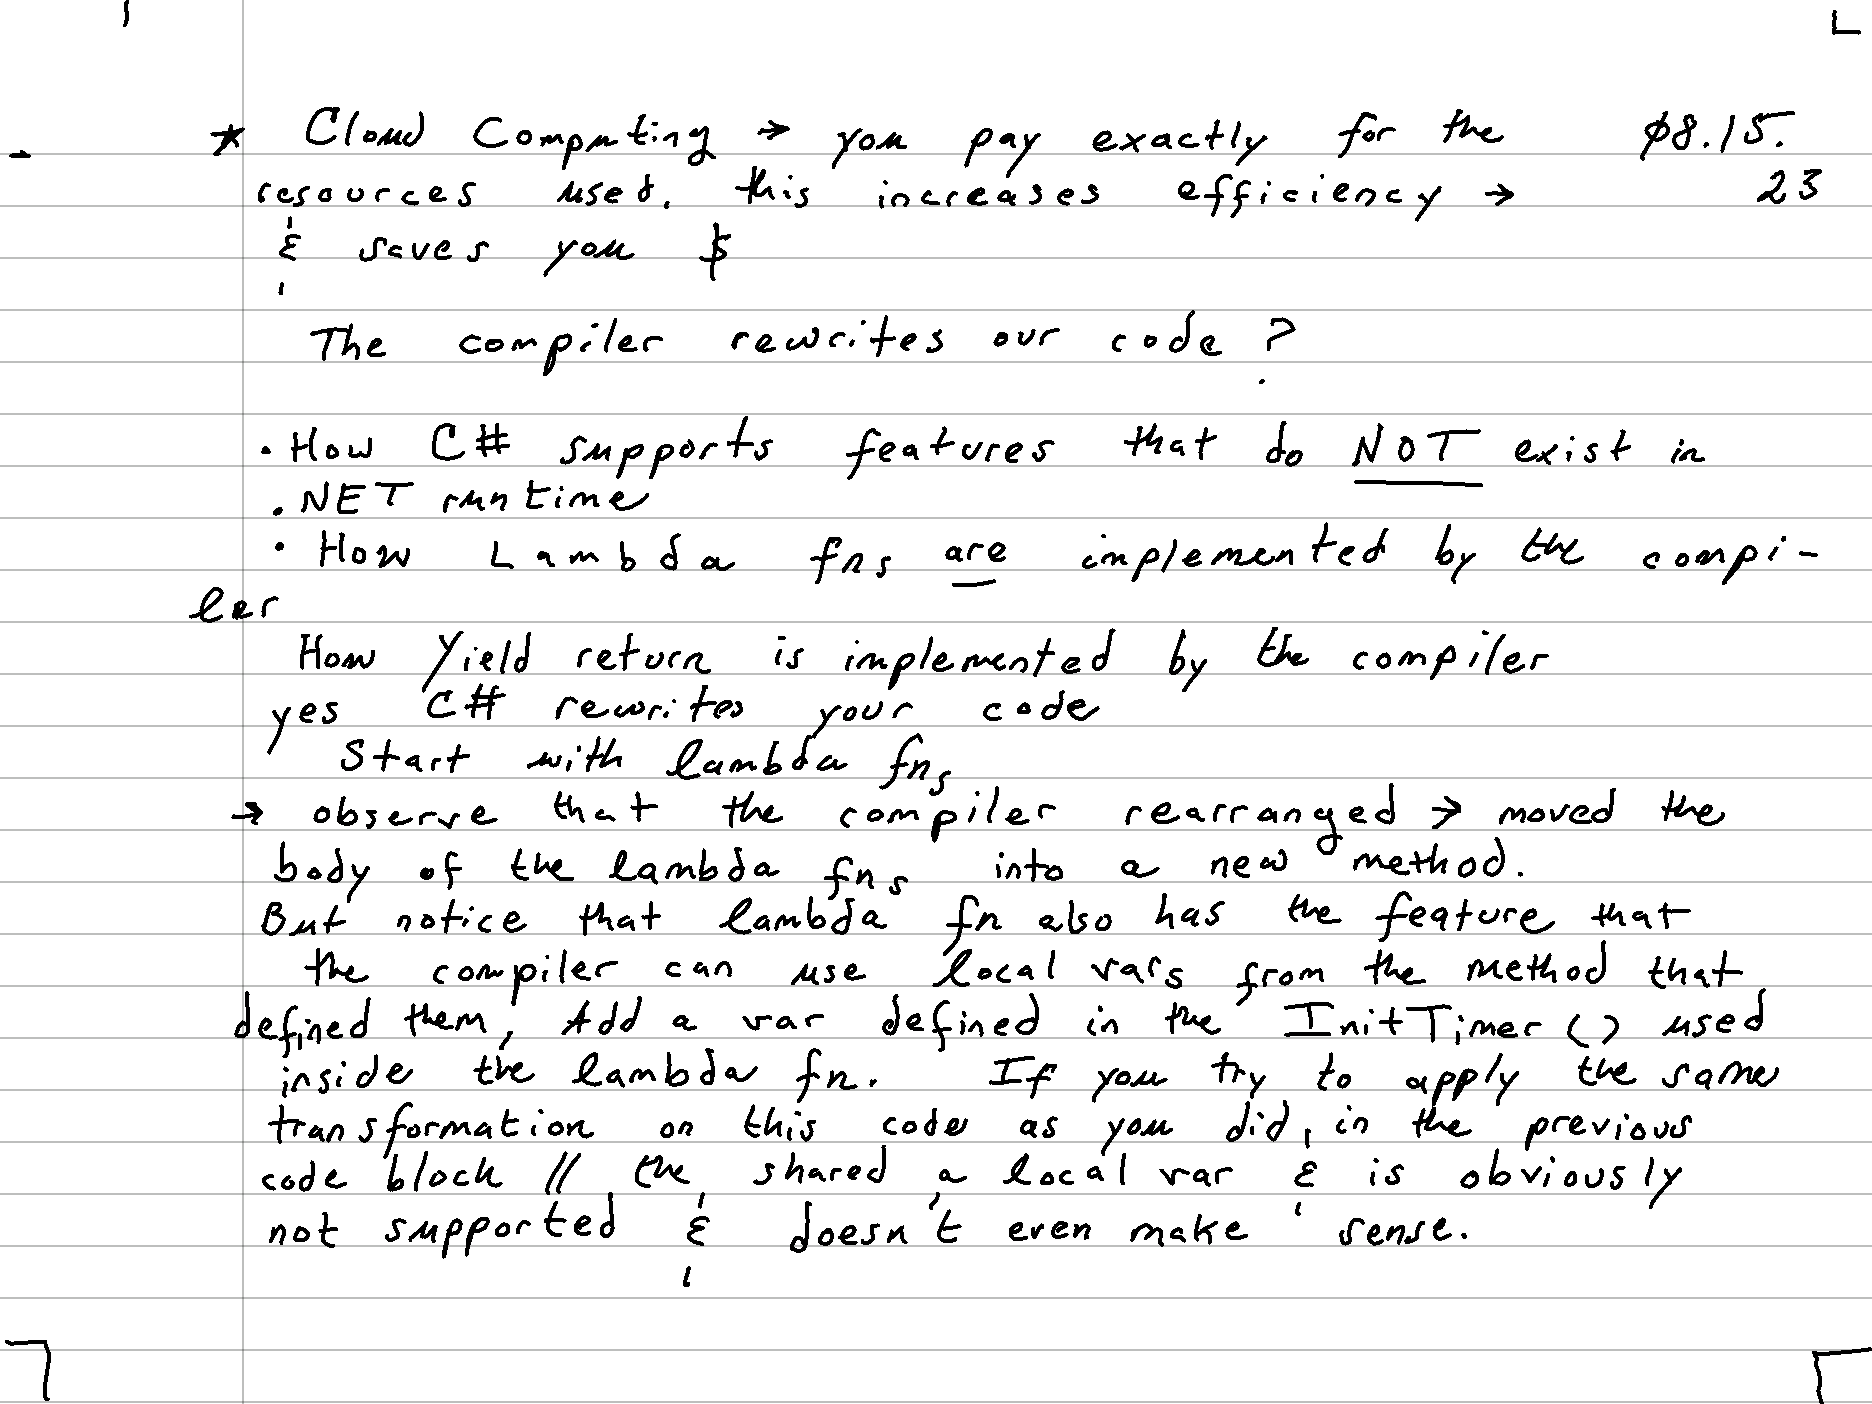 * Cloud Computing → you pay exactly for the ø8.15.
resources used. this increases efficiency → 23
& saves you $
The compiler rewrites our code ?
• How C# supports features that do NOT exist in
.NET runtime
• How Lambda fns are implemented by the compi-
ler
How Yield return is implemented by the compiler
yes C# rewrites your code
Start with lambda fns
→ observe that the compiler rearranged → moved the
body of the lambda fns into a new method.
But notice that lambda fn also has the feature that
the compiler can use local vars from the method that
defined them, Add a var defined in the InitTimer () used
inside the lambda fn. If you try to apply the same
transformation on this code as you did, in the previous
code block // the shared a local var & is obviously
not supported & doesn't even make sense.